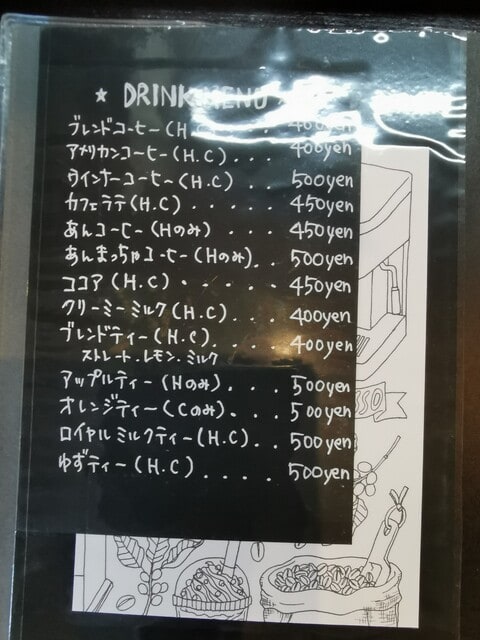 ★ DRINK MENU
ブレンドコーヒー(H.C)... 400yen
アメリカンコーヒー(H.C)... 400yen
ウインナーコーヒー(H.C). 500yen
カフェラテ(H.C)..... 450yen
あんコーヒー(Hのみ)... 450yen
あんまっちゃコーヒー(Hのみ).. 500yen
ココア(H.C)..... 450yen
クリーミーミルク(H.C)... 400yen
ブレンドティー(H.C).... 400yen
ストレート.レモン.ミルク
アップルティー(Hのみ)... 500yen
オレンジティー(Cのみ)... 500yen
ロイヤルミルクティー(H.C).. 500yen
ゆずティー(H.C).... 500yen